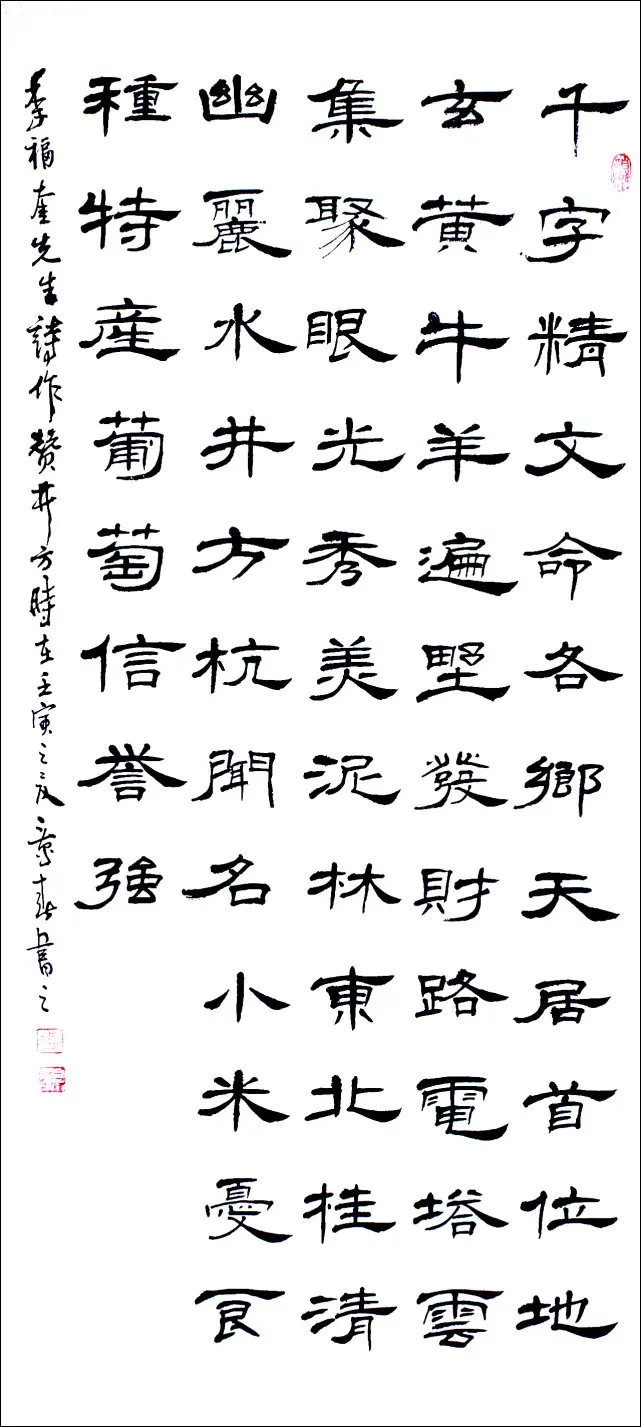 千字精文命各鄉天居首位地
玄黃牛羊遍墅發財路電塔雲
集聚眼光秀美泥林東北桂清
幽麗水井方杭聞名小米憂食
種特産葡萄信譽強
李福奎先生詩作赞井方時在壬寅之夏 春書之